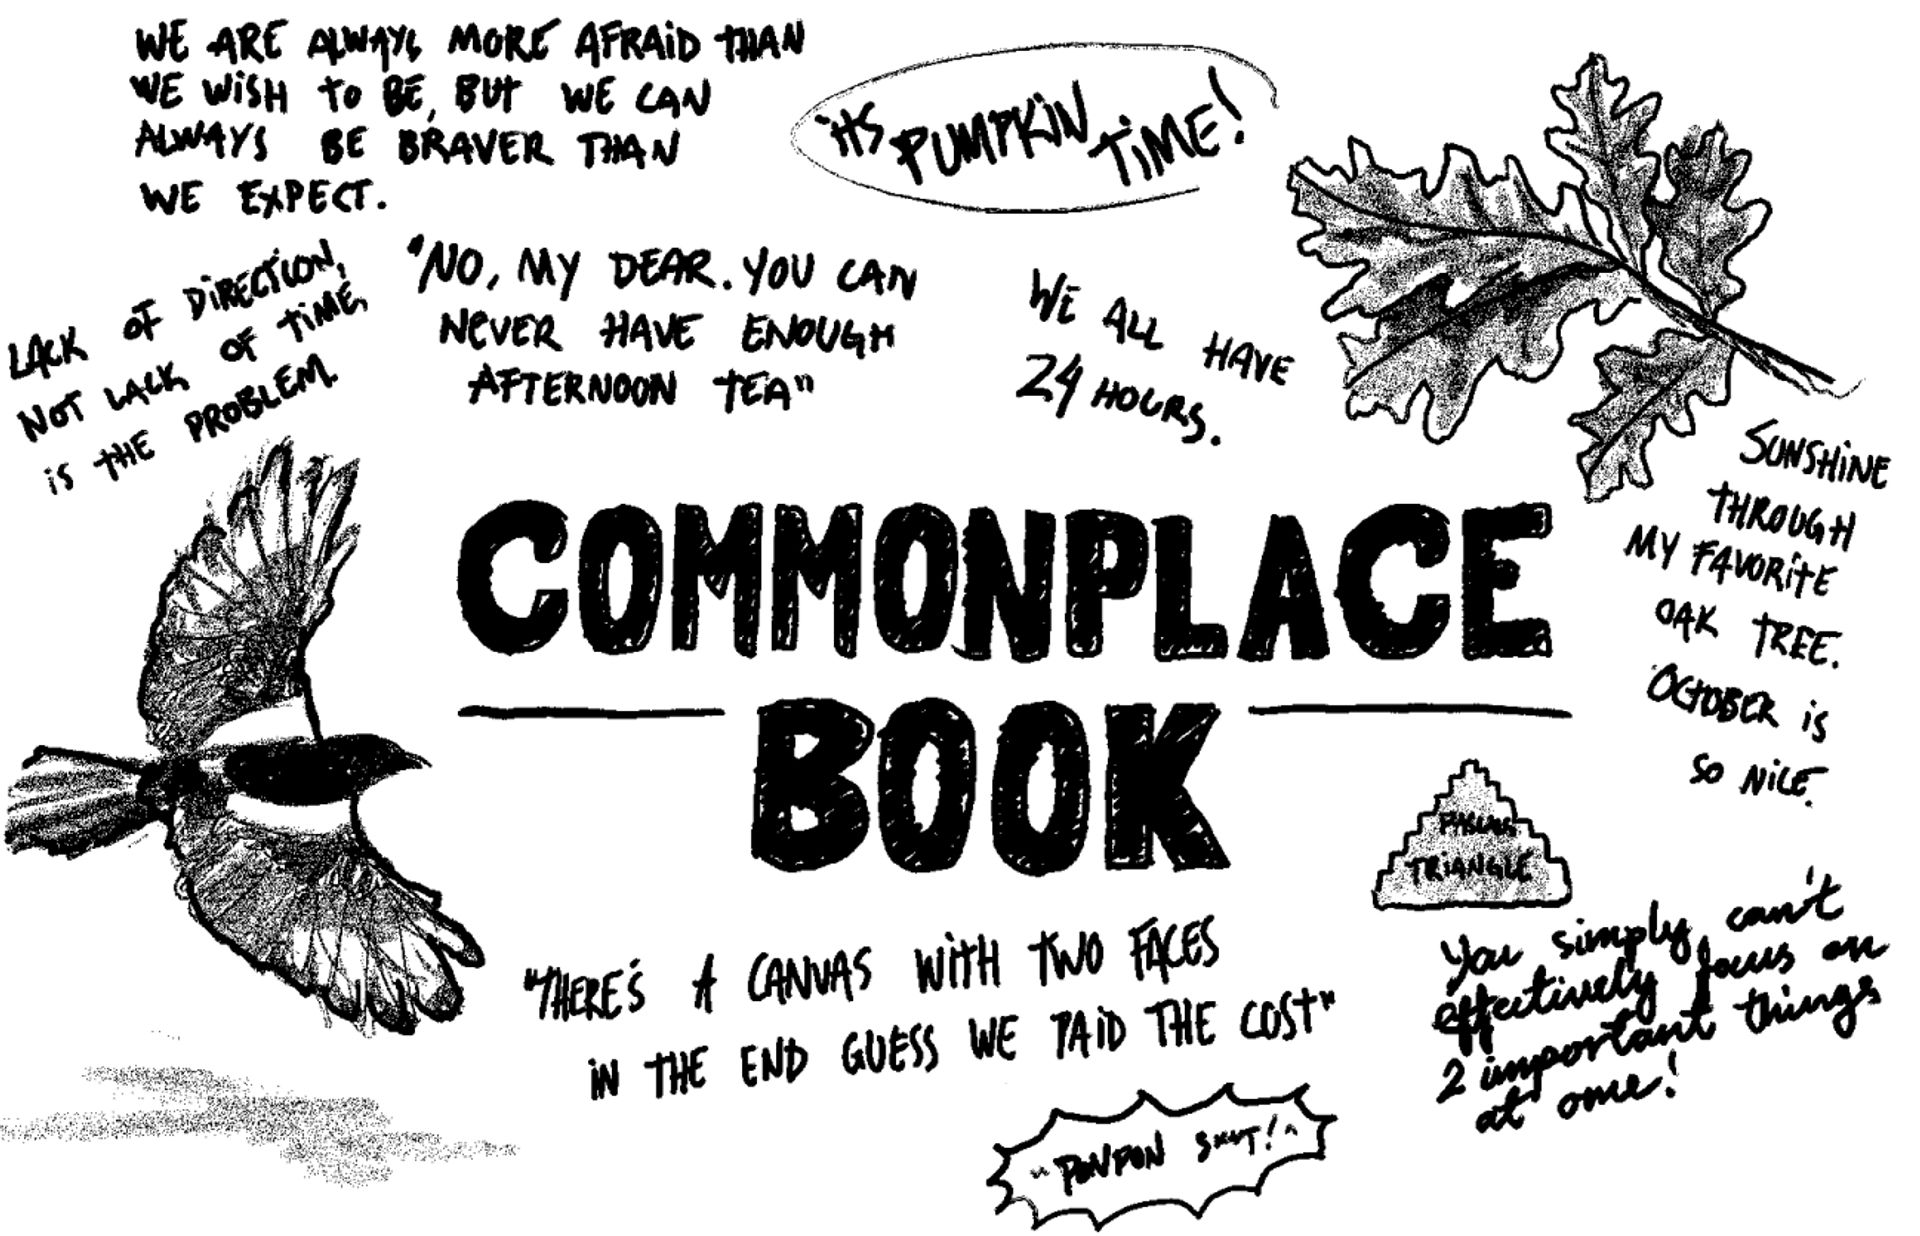 WE ARE ALWAYS MORE AFRAID THAN
WE WISH TO BE, BUT WE CAN
ALWAYS BE BRAVER THAN
WE EXPECT.
itS PUMPKIN TIME!
LACK OF DIRECTION,
NOT LACK OF TIME,
IS THE PROBLEM.
"NO, MY DEAR. YOU CAN
NEVER HAVE ENOUGH
AFTERNOON TEA"
WE ALL HAVE
24 HOURS.
SUNSHINE
THROUGH
MY FAVORITE
OAK TREE.
OCTOBER IS
SO NICE.
COMMONPLACE
BOOK
TRIANGLE
You simply can't
effectively focus on
2 important things
at one!
"THERE'S A CANVAS WITH TWO FACES
IN THE END GUESS WE PAID THE COST"